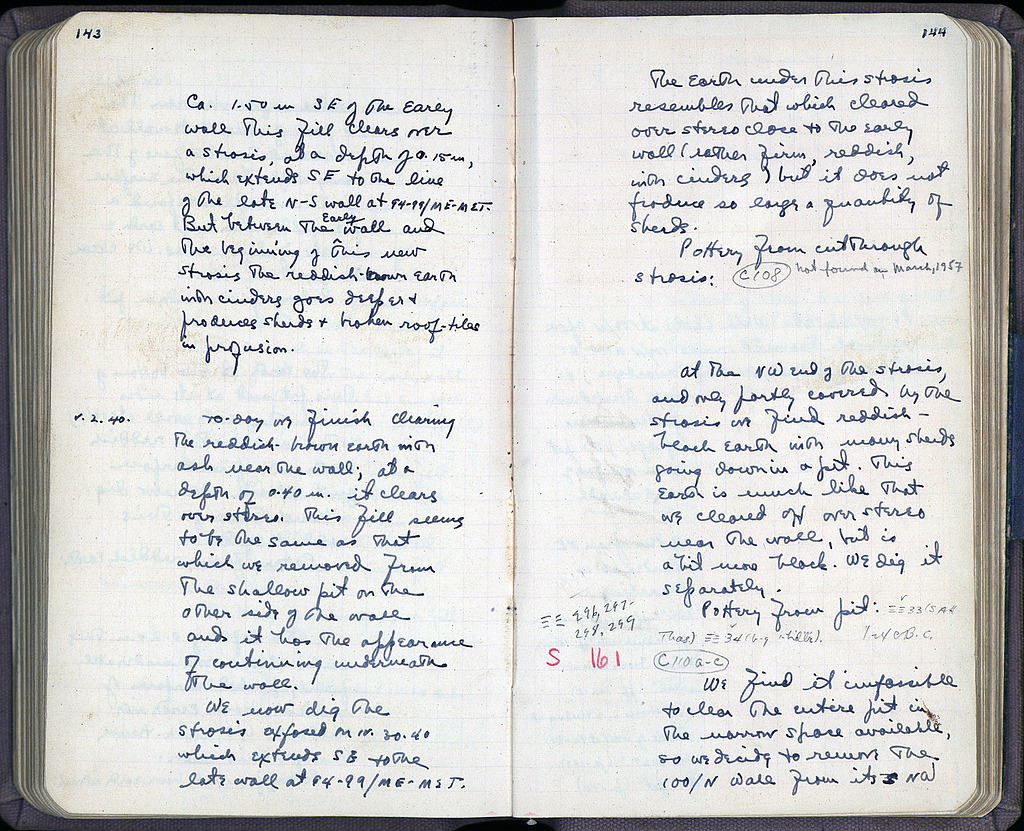 143
Ca. 1.50 m SE of the Early
wall this fill clears over
a strosis, at a depth of 0.15 m,
which extends SE to the line
of the late N-S wall at 94-99/ME-MET.
But between the Early wall and
the beginning of this new
strosis the reddish-brown earth
with cinders goes deeper &
produces sherds & broken roof-tiles
in profusion.
v. 2. 40. to-day we finish clearing
the reddish-brown earth with
ash near the wall; at a
depth of 0.40 m. it clears
over stereo. This fill seems
to be the same as that
which we removed from
the shallow pit on the
other side of the wall
and it has the appearance
of continuing underneath
the wall.
We now dig the
strosis exposed on IV. 30. 40
which extends SE to the
late wall at 94-99/ME-MET.
144
The Earth under this strosis
resembles that which cleared
over stereo close to the early
wall (rather firm, reddish,
with cinders) but it does not
produce so large a quantity of
sherds.
Pottery from cut through
strosis: C 108 Not found in March, 1957
at the NW end of the strosis,
and only partly covered by the
strosis we find reddish-
black earth with many sherds
going down in a pit. This
Earth is much like that
we cleared off over stereo
near the wall, but is
a bit more black. We dig it
separately.
Pottery from pit:
296, 297-
298, 299
1-4 c B.C.
S 161 C 110 a-c
We find it impossible
to clear the entire pit in
the narrow space available,
so we decide to remove the
100/N wall from its NW